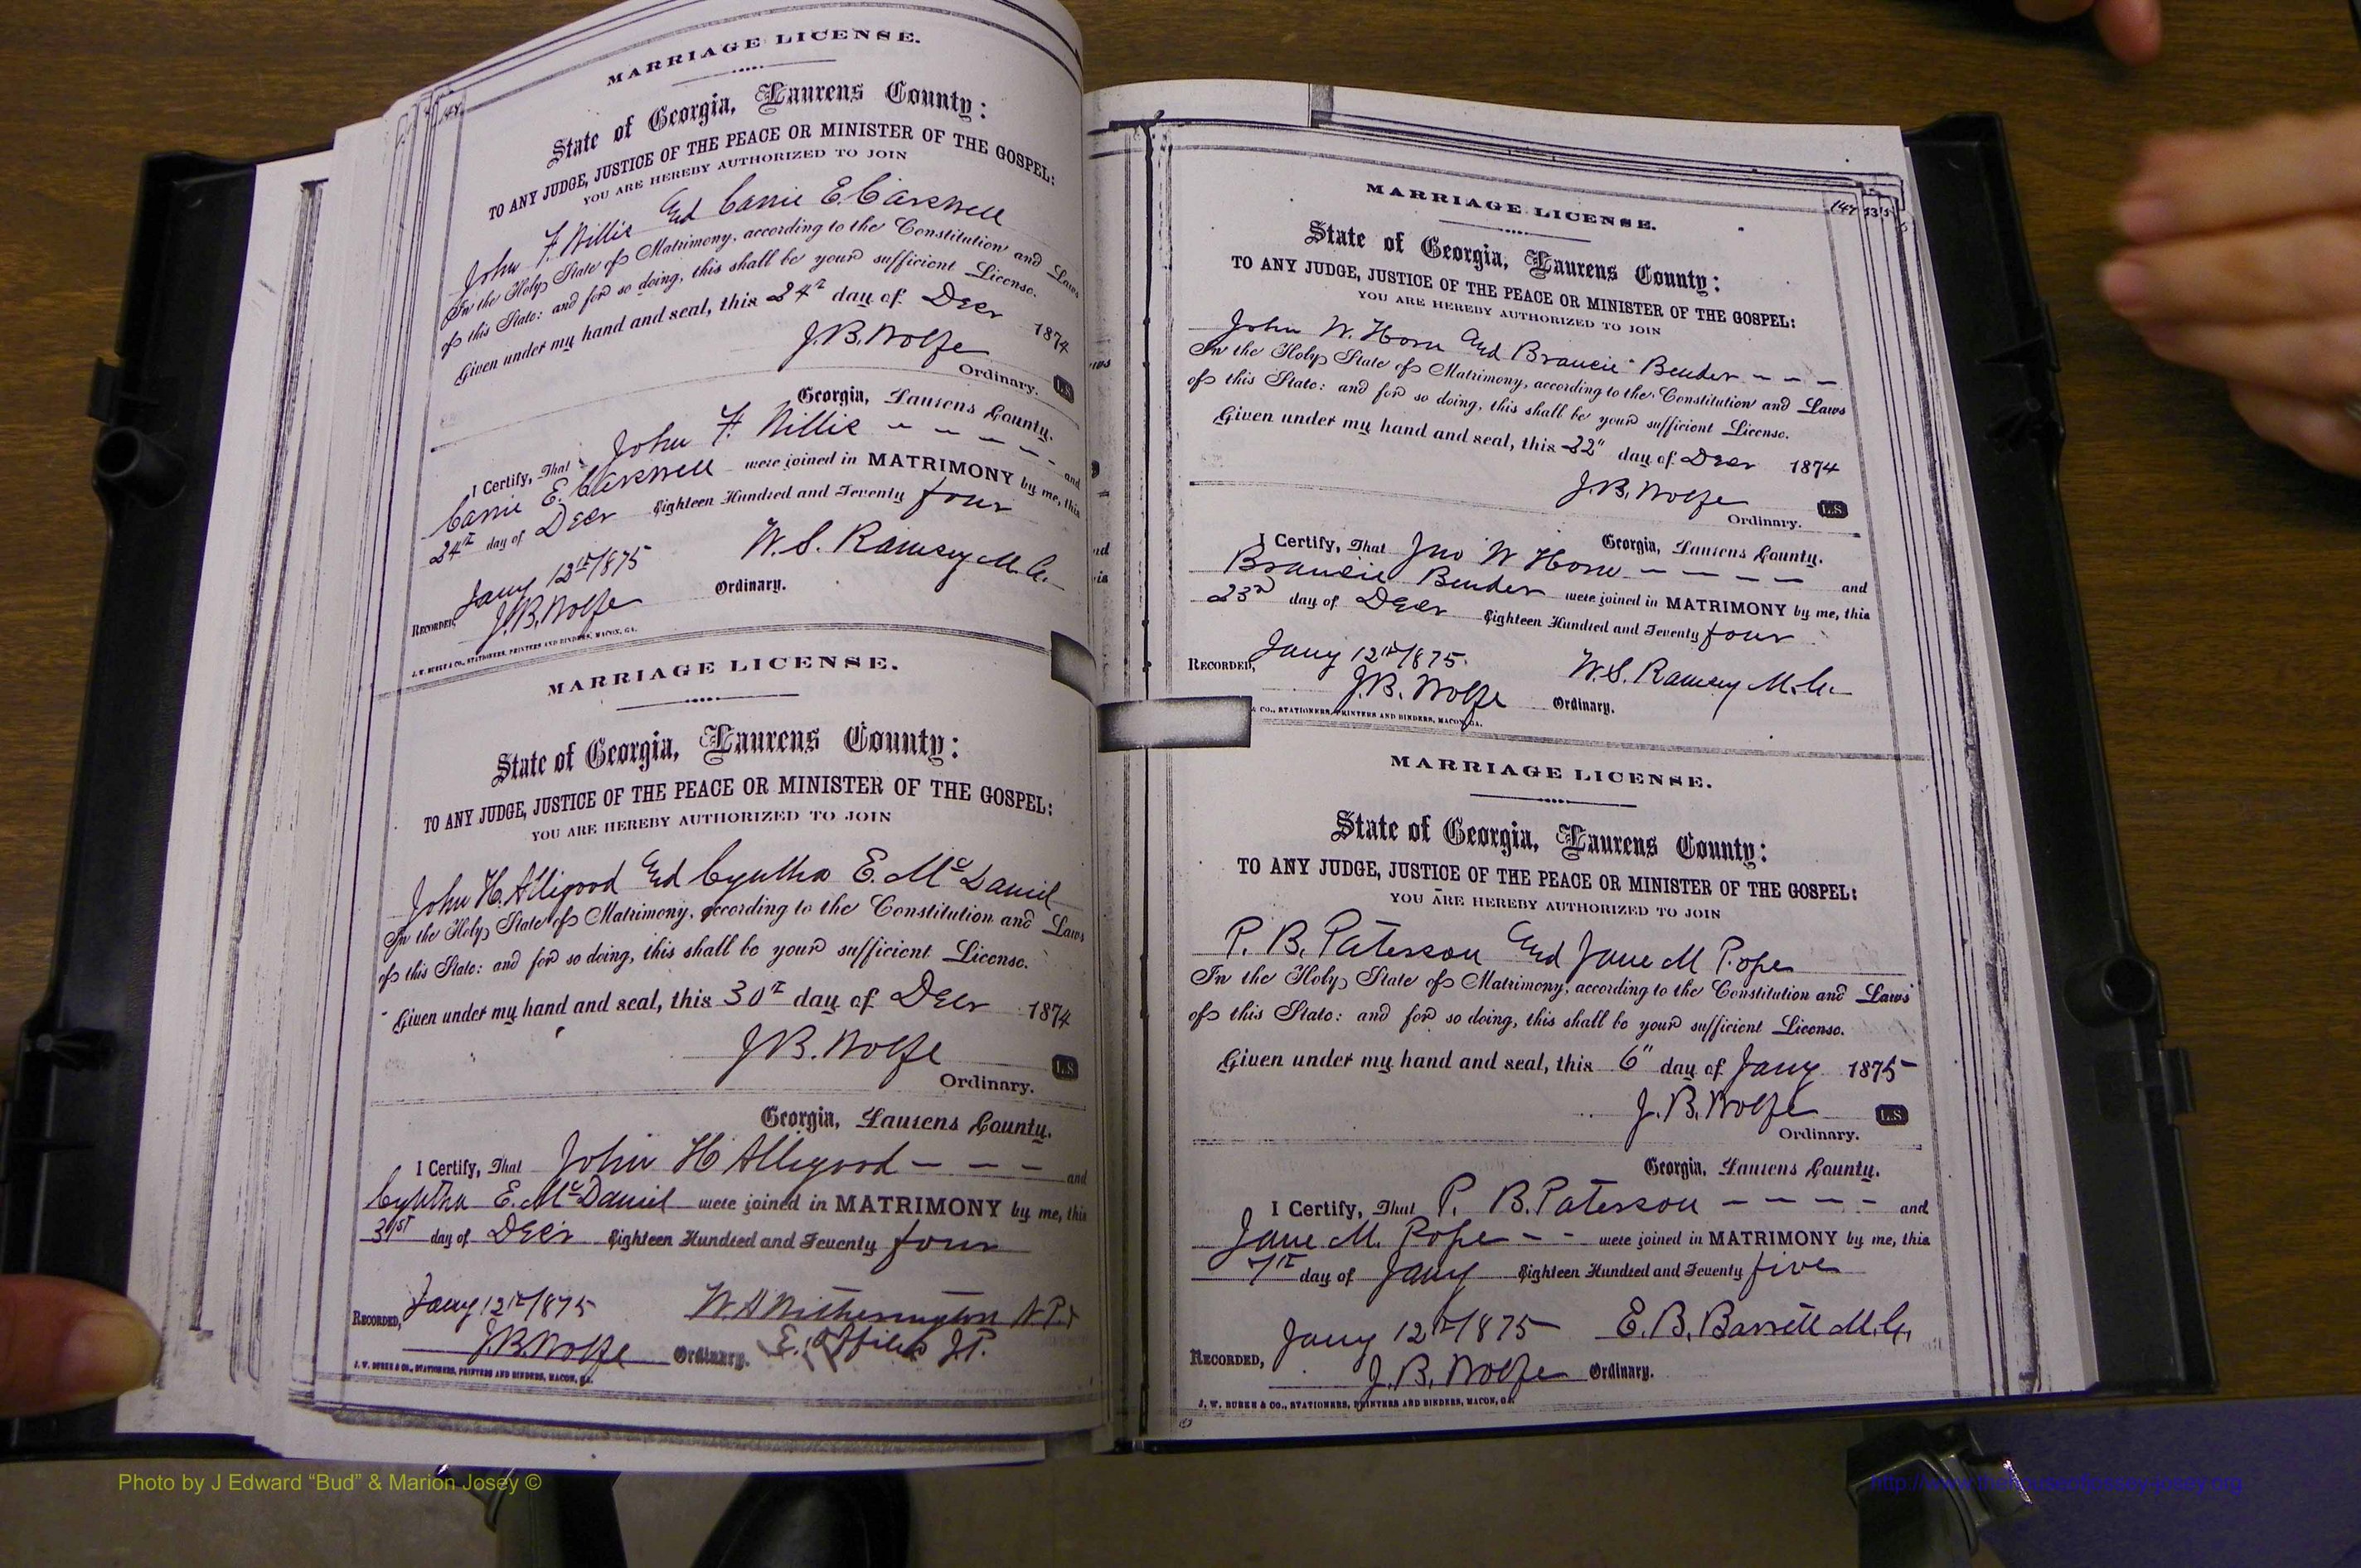 MARRIAGE LICENSE.
State of Georgia, Laurens County:
TO ANY JUDGE, JUSTICE OF THE PEACE OR MINISTER OF THE GOSPEL:
YOU ARE HEREBY AUTHORIZED TO JOIN
John F. Willis And Carrie E. Carswell
In the Holy State of Matrimony, according to the Constitution and Laws
of this State: and for so doing, this shall be your sufficient License.
Given under my hand and seal, this 24th day of Decr 1874
J.B. Wolfe
Ordinary. L.S.
Georgia, Laurens County.
I Certify, That John F. Willis - - - - - and
Carrie E. Carswell were joined in MATRIMONY by me, this
24th day of Decr Eighteen Hundred and Seventy four
W.S. Ramsey M.G.
RECORDED, Jany 12th/1875
J.B. Wolfe Ordinary.
J. W. BURKE & CO., STATIONERS, PRINTERS AND BINDERS, MACON, GA.
MARRIAGE LICENSE.
State of Georgia, Laurens County:
TO ANY JUDGE, JUSTICE OF THE PEACE OR MINISTER OF THE GOSPEL:
YOU ARE HEREBY AUTHORIZED TO JOIN
John H. Alligood And Cyntha E. McDaniel
In the Holy State of Matrimony, according to the Constitution and Laws
of this State: and for so doing, this shall be your sufficient License.
Given under my hand and seal, this 30th day of Decr 1874
J.B. Wolfe
Ordinary. L.S.
Georgia, Laurens County.
I Certify, That John H Alligood - - - and
Cyntha E. McDaniel were joined in MATRIMONY by me, this
31st day of Decr Eighteen Hundred and Seventy four
RECORDED, Jany 12th/1875 W.H. Witherington N.P. &
J.B. Wolfe Ordinary. E. J.P.
J. W. BURKE & CO., STATIONERS, PRINTERS AND BINDERS, MACON, GA.
MARRIAGE LICENSE.
State of Georgia, Laurens County:
TO ANY JUDGE, JUSTICE OF THE PEACE OR MINISTER OF THE GOSPEL:
YOU ARE HEREBY AUTHORIZED TO JOIN
John W. Horn And Brancie Bender - - -
In the Holy State of Matrimony, according to the Constitution and Laws
of this State: and for so doing, this shall be your sufficient License.
Given under my hand and seal, this 22" day of Decr 1874
J.B. Wolfe
Ordinary. L.S.
Georgia, Laurens County.
I Certify, That Jno W Horn - - - - and
Brancie Bender were joined in MATRIMONY by me, this
23d day of Decr Eighteen Hundred and Seventy four
RECORDED, Jany 12th/1875. W.S. Ramsey M.G.
J.B. Wolfe Ordinary.
& CO., STATIONERS, PRINTERS AND BINDERS, MACON, GA.
MARRIAGE LICENSE.
State of Georgia, Laurens County:
TO ANY JUDGE, JUSTICE OF THE PEACE OR MINISTER OF THE GOSPEL:
YOU ARE HEREBY AUTHORIZED TO JOIN
P. B. Paterson And Jane M Pope
In the Holy State of Matrimony, according to the Constitution and Laws
of this State: and for so doing, this shall be your sufficient License.
Given under my hand and seal, this 6" day of Jany 1875
J.B. Wolfe
Ordinary. L.S.
Georgia, Laurens County.
I Certify, That P. B. Paterson - - - - and
Jane M. Pope - - were joined in MATRIMONY by me, this
7th day of Jany Eighteen Hundred and Seventy five
RECORDED, Jany 12th/1875 E.B. Barrett M.G.
J.B. Wolfe Ordinary.
J. W. BURKE & CO., STATIONERS, PRINTERS AND BINDERS, MACON, GA.
Photo by J Edward “Bud” & Marion Josey ©